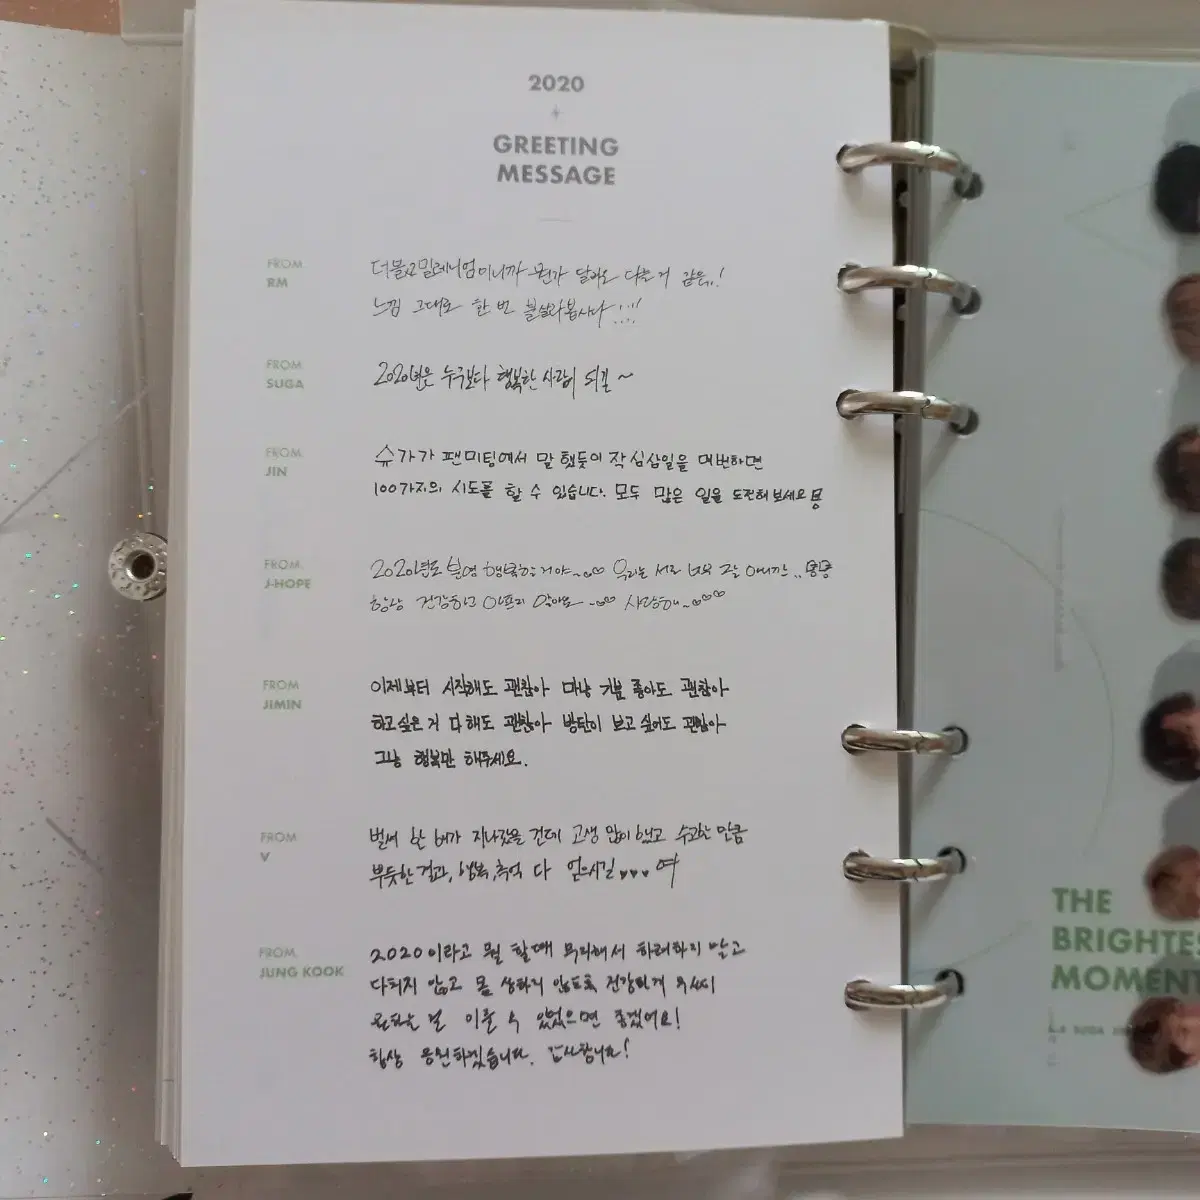 2020
GREETING
MESSAGE
FROM.
RM
더블2밀레니엄이니까 뭔가 달라도 다를거 같은..!
느낌 그대로 한 번 불살라봅시다 !!!
FROM.
SUGA
2020년은 누구보다 행복한 사람이 되길~
FROM.
JIN
슈가가 팬미팅에서 말했듯이 작심삼일을 매번하면
100가지의 시도를 할 수 있습니다. 모두 많은 일을 도전해보세요
FROM.
J-HOPE
2020년도 분명 행복할거야~♡♡ 우리는 서로 너무 잘 아니깐..
항상 건강하고 아프지 말아요 ~♡♡ 사랑해~♡♡♡
FROM
JIMIN
이제부터 시작해도 괜찮아 마냥 기분 좋아도 괜찮아
하고싶은 거 다 해도 괜찮아 방탄이 보고 싶어도 괜찮아
그냥 행복만 해주세요.
FROM
V
벌써 한 해가 지나갔을 건데 고생 많이 했고 수고한 만큼
뿌듯한 결과, 행복, 추억 다 얻으시길 ♥♥♥
FROM.
JUNG KOOK
2020이라고 뭘 할때 무리해서 하려하지 말고
다치지 않고 몸 상하지 않도록 건강하게
원하는 걸 이룰 수 있었으면 좋겠어요!
항상 응원하겠습니다. 감사합니다!
THE
BRIGHTES
MOMENT
SUGA